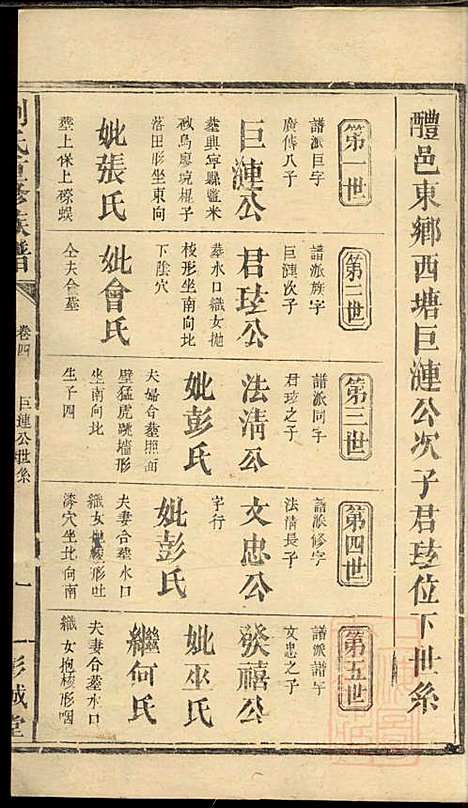 醴邑東鄉西塘巨漣公次子君玹位下世系
第一世
譜派巨字
廣傳八子
巨漣公
墓興寧縣鹽米
砍烏廖琬棍子
落田形坐東向
妣張氏
塟上保上磜蜈
第二世
譜派族字
巨漣次子
君玹公
墓水口織女拋
梭形坐南向北
下陰穴
妣會氏
仝夫合墓
第三世
譜派同字
君玹之子
法清公
妣彭氏
夫婦合墓照面
壁猛虎跳墻形
坐南向北
生子四
第四世
譜派修字
法情長子
文忠公
字行
妣彭氏
夫妻合墓水口
織女抛梭形吐
坐北向南
第五世
譜派譜字
文忠之子
發禧公
妣巫氏
繼何氏
夫妻合墓水口
織女抱梭形咽
劉氏重修族譜
卷四
巨漣公世系
一
彭城堂